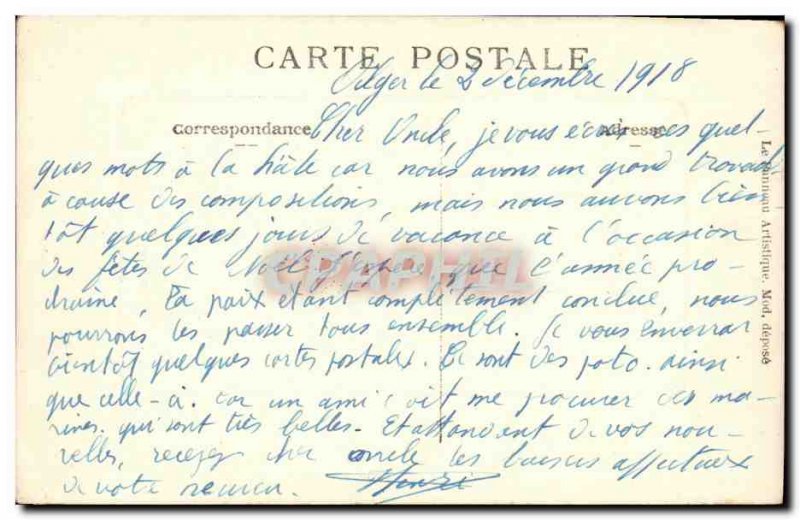 CARTE POSTALE
Alger le 2 Décembre 1918
Correspondance
Adresse
Cher Oncle, je vous écris ces quel-
ques mots à la hâte car nous avons un grand travail
à cause des compositions, mais nous aurons bien
tôt quelques jours de vacance à l'occasion
des fêtes de Noël. J'espère que l'année pro-
chaine, la paix étant complètement conclue, nous
pourrons les passer tous ensemble. Je vous enverrai
bientôt quelques cartes postales. Ce sont des foto. ainsi
que celle-ci. car un ami doit me procurer des ma-
rines. qui sont très belles. Et attendant de vos nou-
velles, recevez cher oncle les baisers affectueux
de votre neveu.
Henri
Le Panneau Artistique. Mod. déposé
CPAPHIL